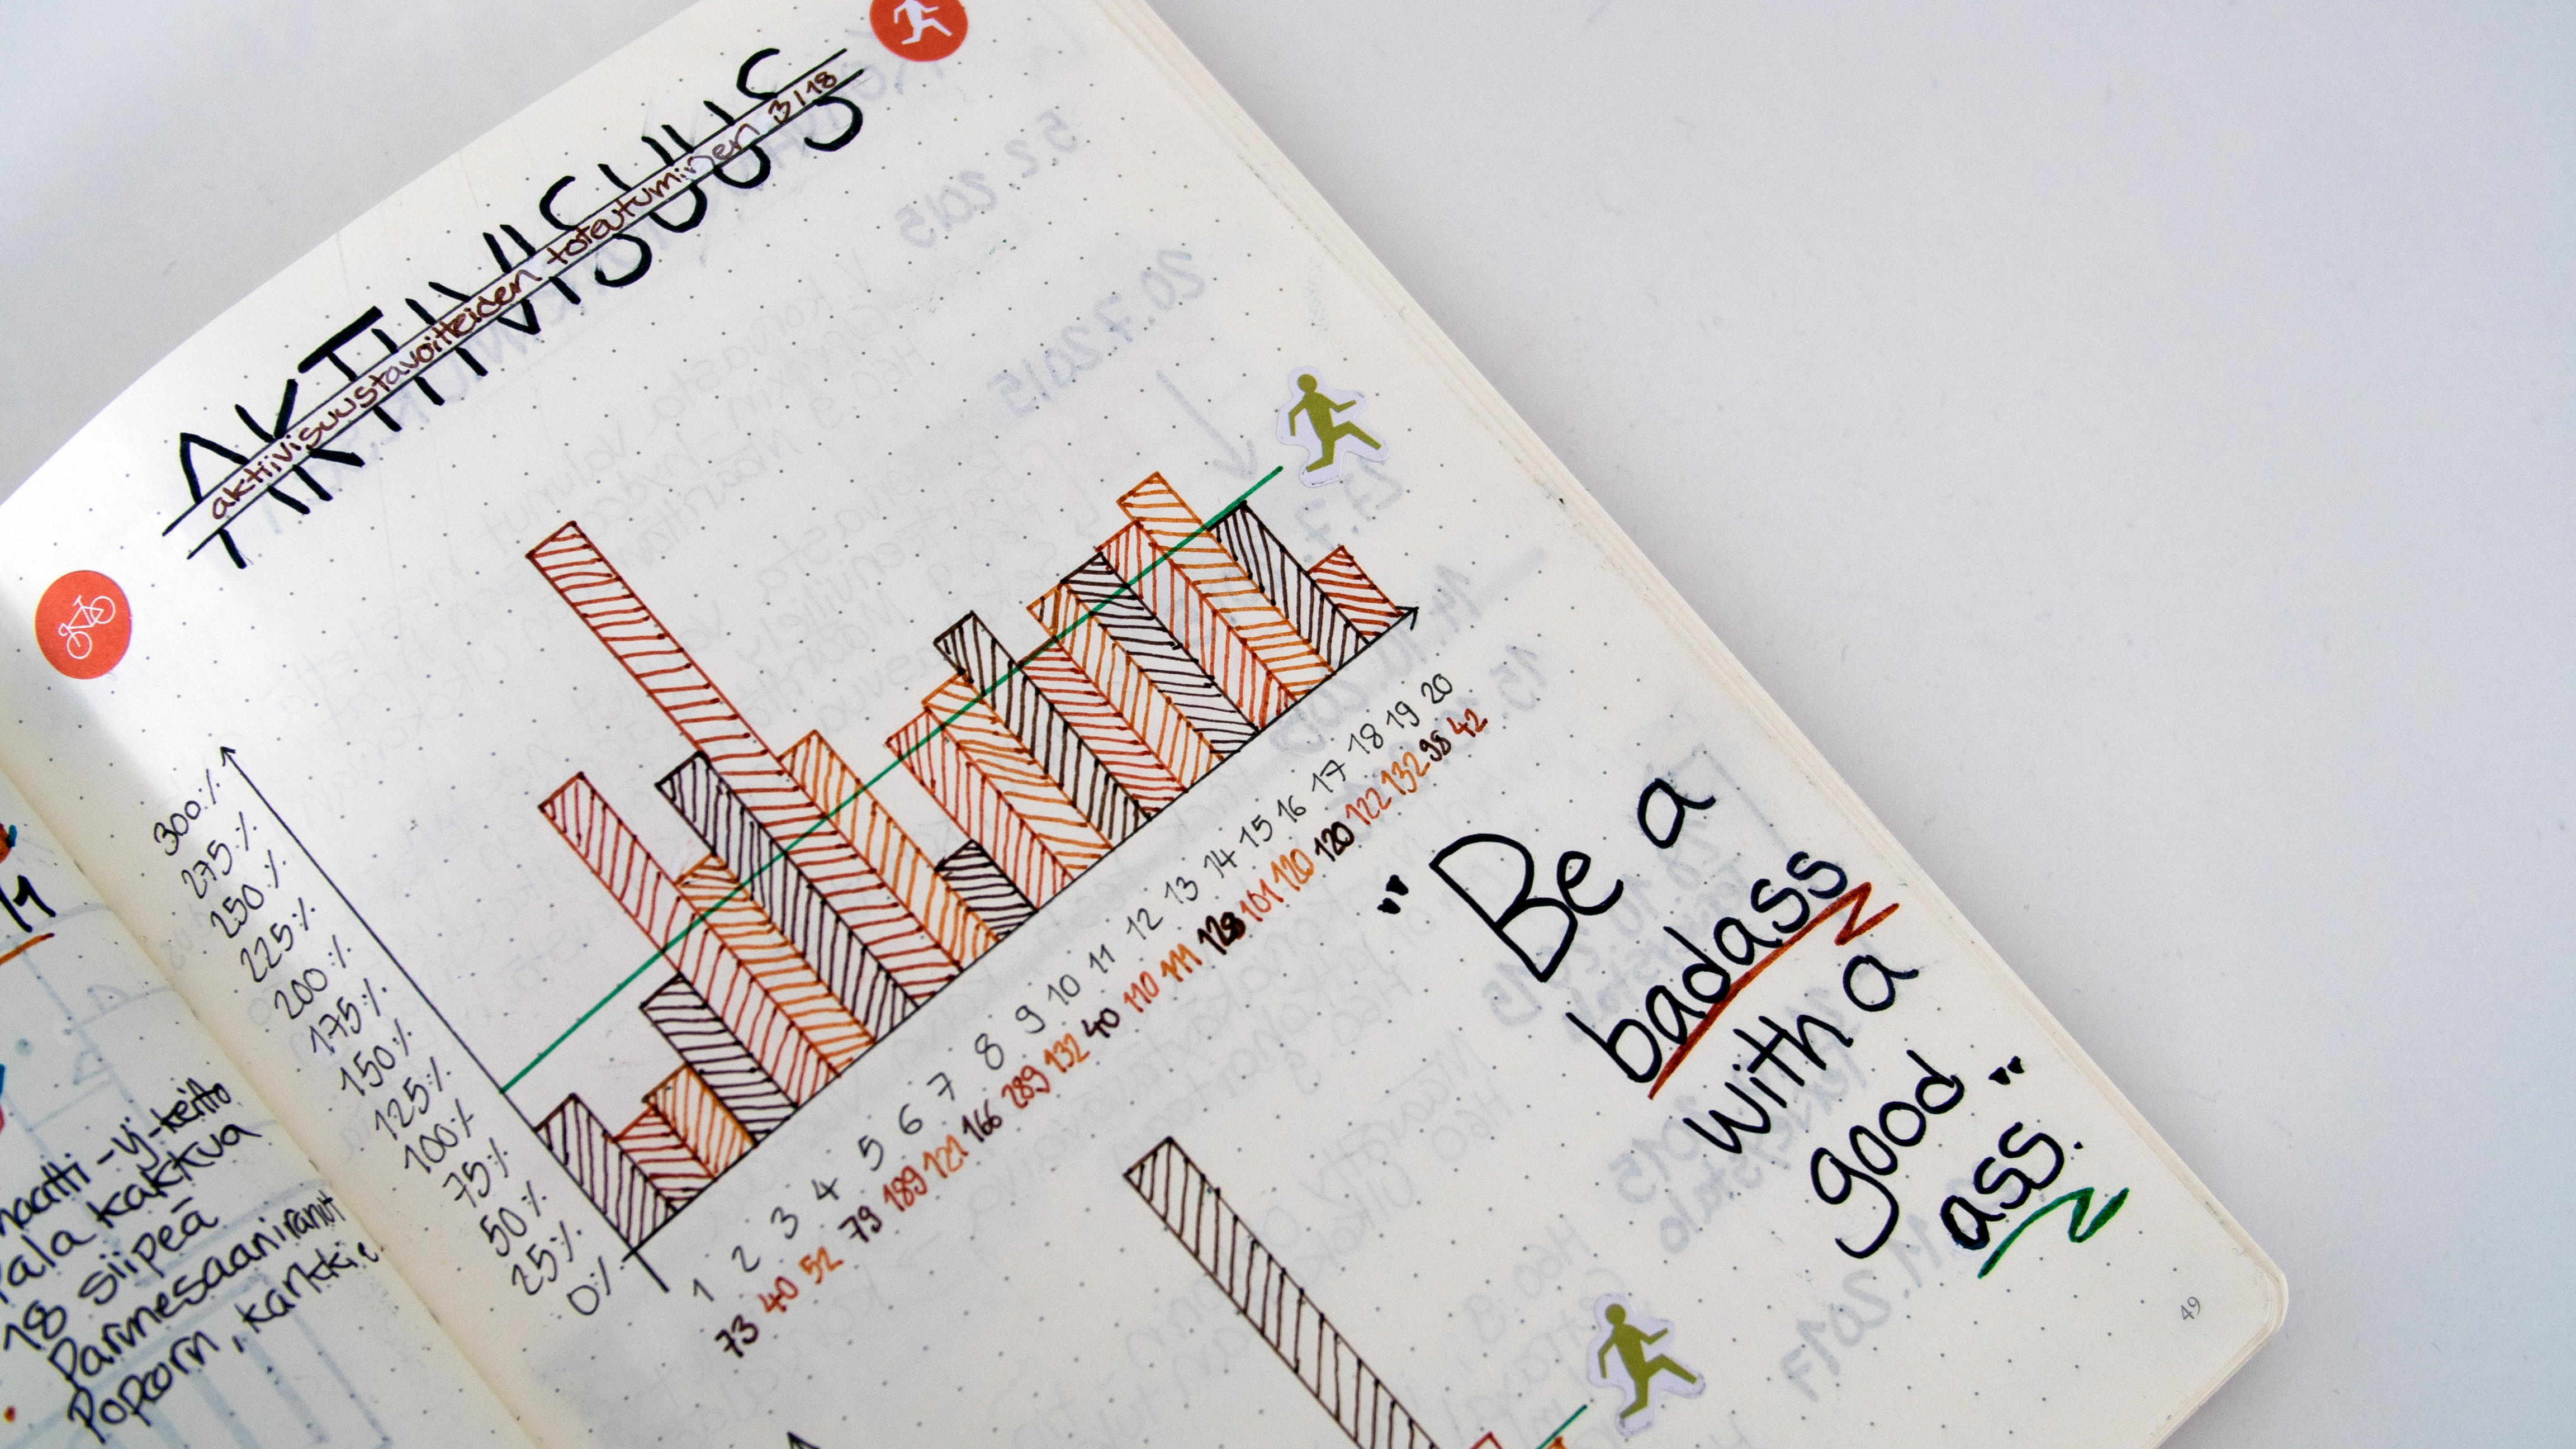 AKTIIVISUUS
aktiivisuustavoitteiden toteutuminen 3/18
300%
275%
250%
225%
200%
175%
150%
125%
100%
75%
50%
25%
0%
1 2 3 4 5 6 7 8 9 10 11 12 13 14 15 16 17 18 19 20
73 40 52 79 189 121 166 289 132 40 110 111 128 101 120 120 122 132 98 42
"Be a
badass
with a
good
ass."
kakkua
18 siipeä
Parmesaaniranut
Popcorn, karkkie
49